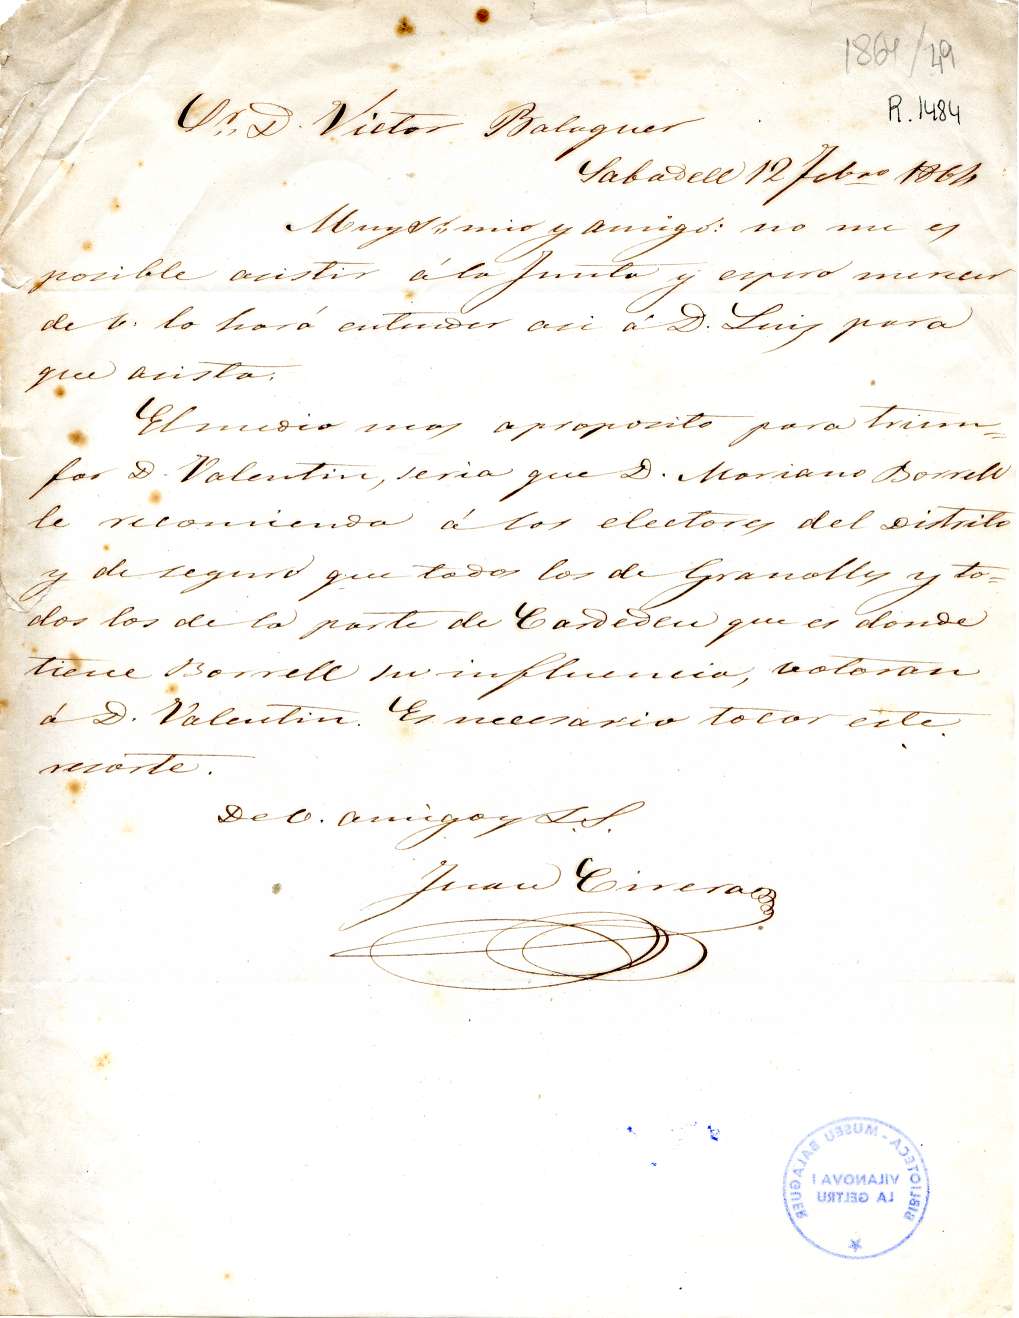 1864/49
R. 1484
Sr. D. Victor Balaguer
Sabadell 12 Febro 1864
Muy Sr. mio y amigo: no me es
posible asistir á la Junta y espero merecer
de V. lo hará entender asi á D. Luis para
que asista.
El medio mas aproposito para trium=
far D. Valentin, seria que D. Mariano Borrell
le recomienda á los electores del Distrito
y de seguro que todos los de Granollers y to=
dos los de la parte de Cardedeu que es donde
tiene Borrell su influencia, votaran
á D. Valentin. Es necesario tocar este
resorte.
De V. amigo y S.S.
Juan Cirera
BIBLIOTECA - MUSEU BALAGUER
VILANOVA I
LA GELTRU